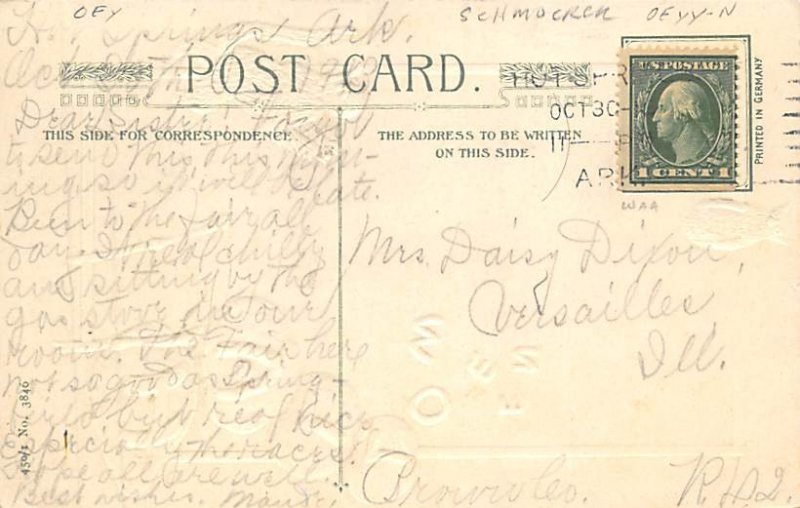 OEY
SCHMOCKER OEYY-N
Hot Springs Ark.
Oct 29th
POST CARD.
THIS SIDE FOR CORRESPONDENCE.
THE ADDRESS TO BE WRITTEN
ON THIS SIDE.
U.S. POSTAGE
1 CENT 1
HOT SPR
OCT 30
11
ARK
PRINTED IN GERMANY
WAA
Dear Sister: Forgot
to send this this morn-
ing so it will be late.
Been to the fair all
day. I real chilly
and sitting by the
gas stove in our
room. The Fair here
not so good as Spring-
field but real nice
Especially the races.
Hope all are well.
Best wishes. Maude.
Mrs. Daisy Dixon,
Versailles
Ill.
Brown Co. R.#2.
450/1 No. 3840